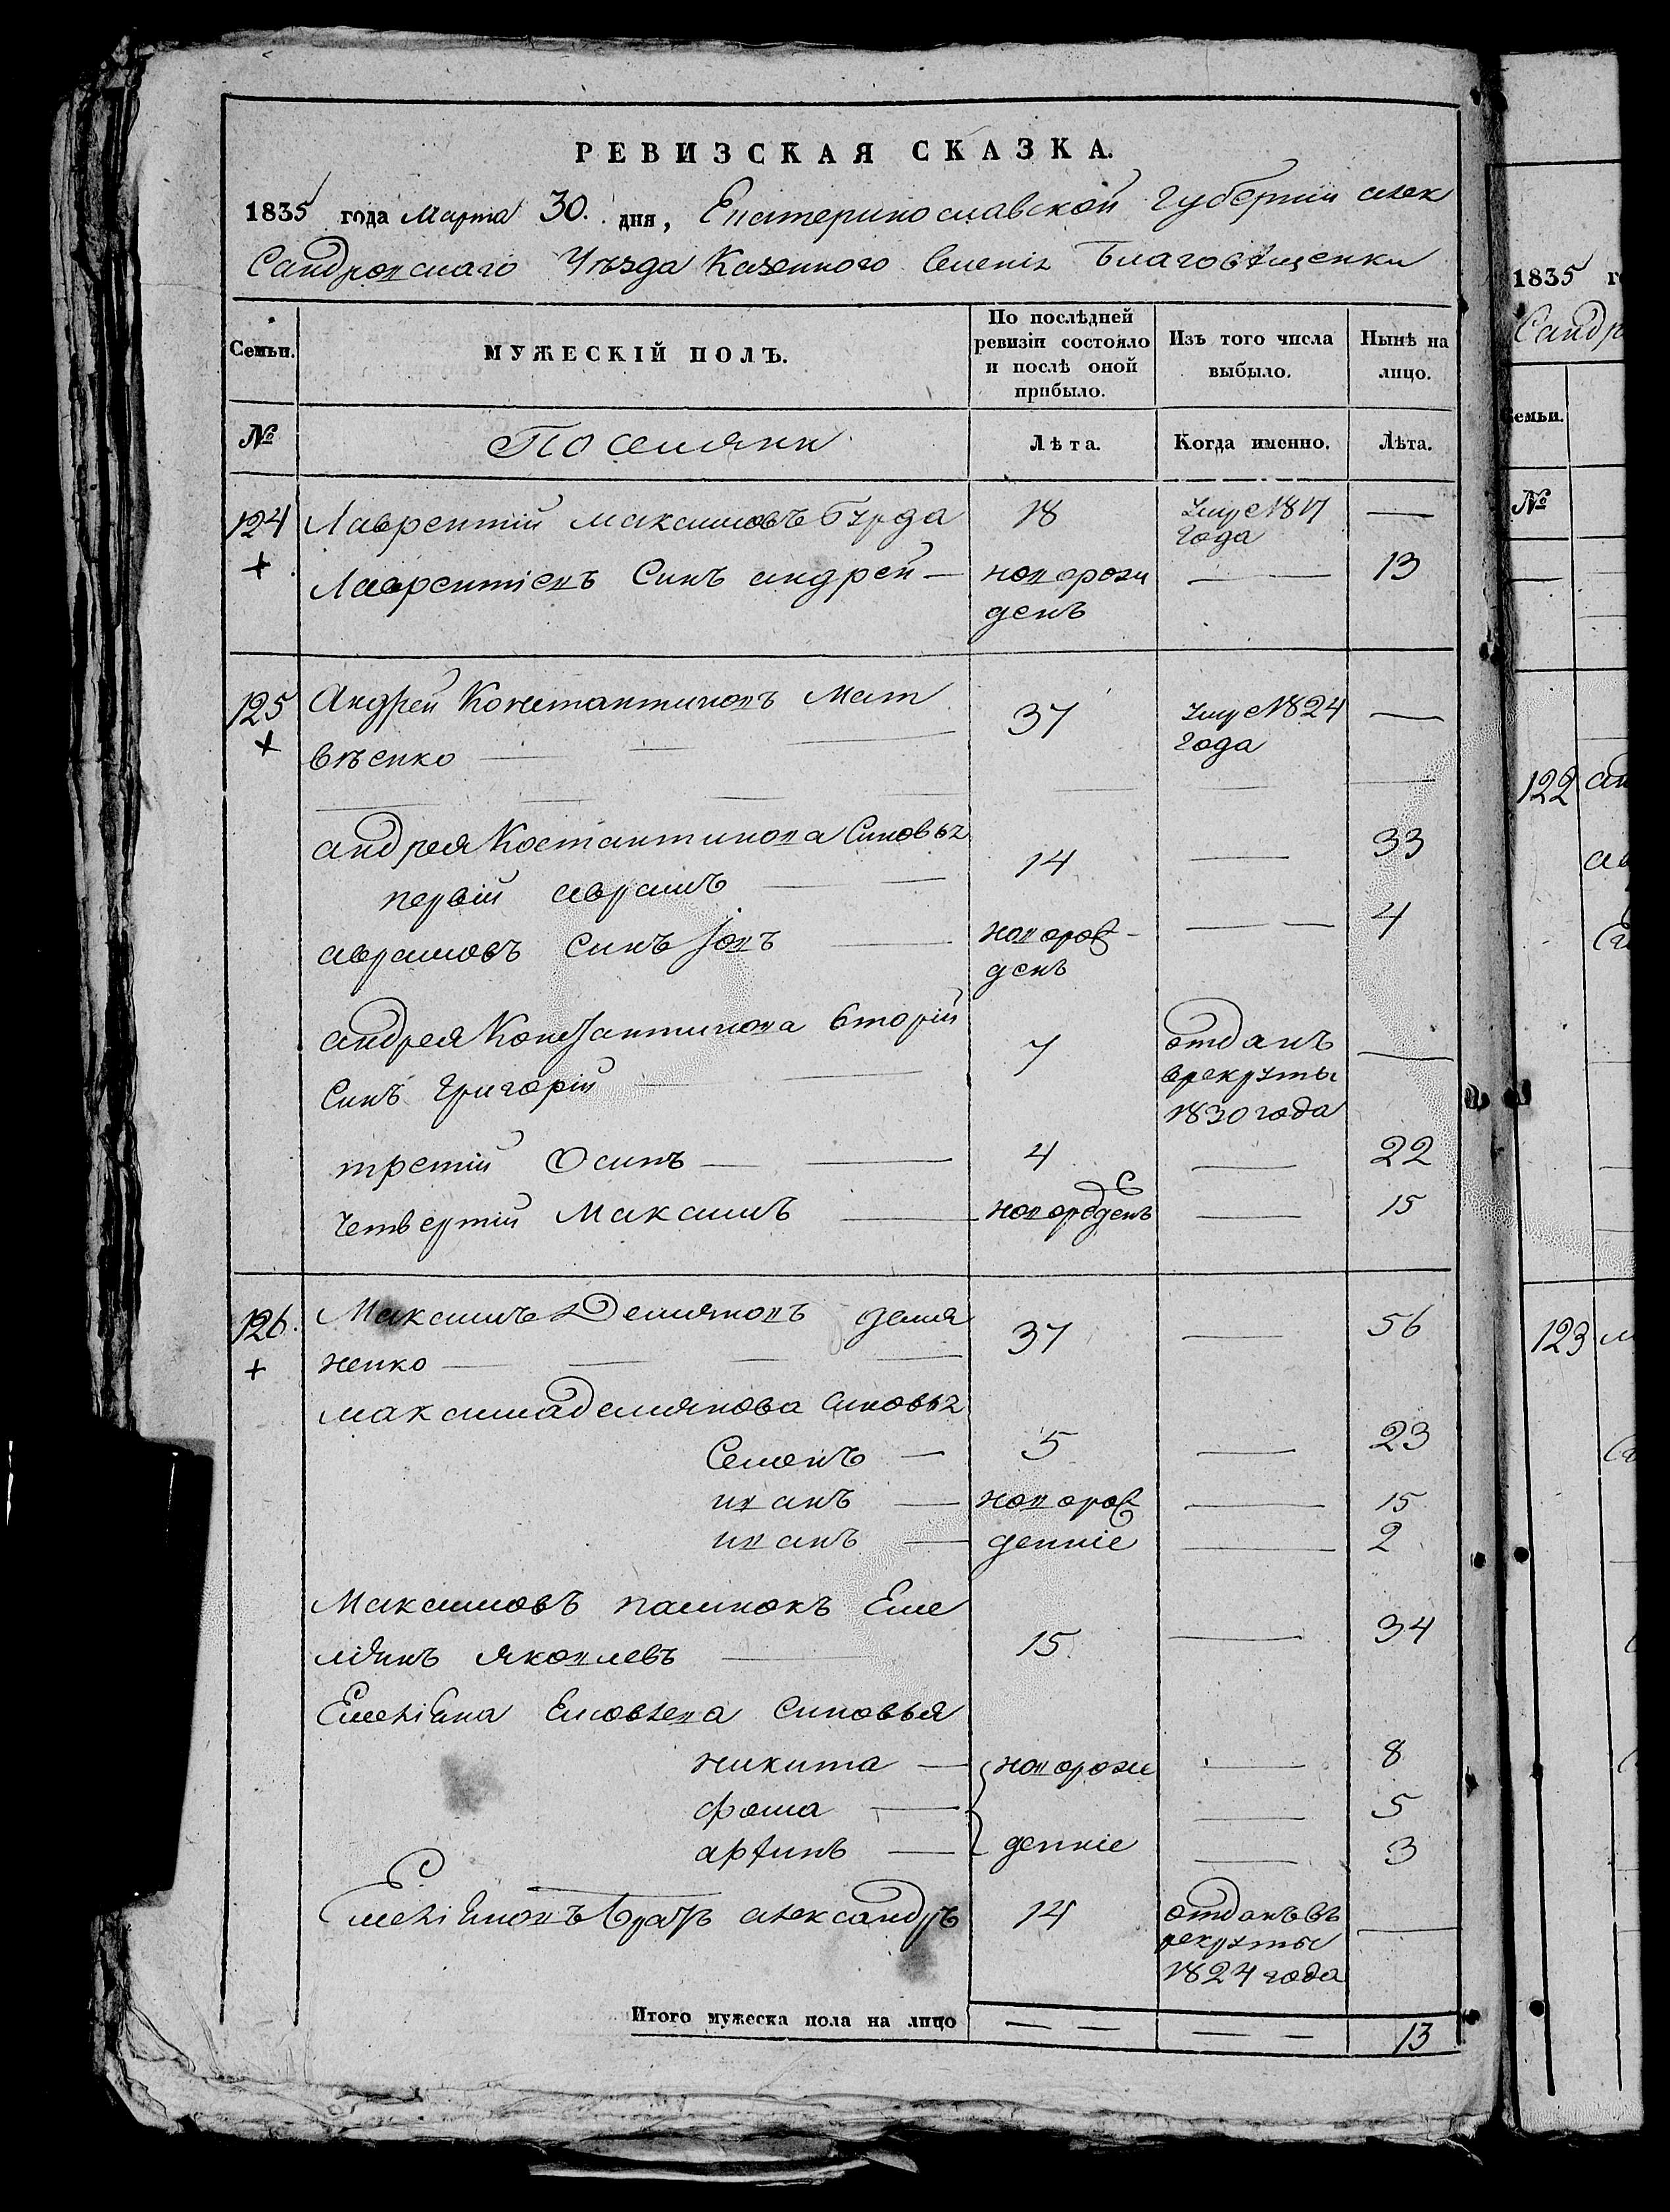 РЕВИЗСКАЯ СКАЗКА.
1835 года Марта 30. дня, Екатеринославской Губернии Алек
Сандровскаго Уезда Казенного Селения Благовещенки
Семьи. МУЖЕСКІЙ ПОЛЪ. По послѣдней ревизіи состояло и послѣ оной прибыло. Изъ того числа выбыло. Нынѣ на лицо.
№ Поселяни Лѣта. Когда именно. Лѣта.
124 Лаврентий Максимовъ Бурда 18 умре 1817 года —
+ Лаврентіевъ Синъ андрей — новорожденъ — 13
125 Андрей Константиновъ Мат 37 умре 1824 года —
+ вѣенко —
андрея Костантинова Синовья
первій аврамъ — 14 — 33
аврамовъ Синъ Іовъ — новорожденъ — 4
андрея Константинова вторій 7 отданъ врекруты 1830 года —
Синъ Григорій —
третий Осипъ — 4 — 22
четвертий Максимъ — новорожденъ — 15
126. Максимъ Демяновъ демя 37 — 56
+ ненко —
максима демянова синовья
Семенъ — 5 — 23
иванъ — новорож — 15
иванъ — денніе — 2
Максимовъ племнокъ Еме
лянъ яковлевъ — 15 — 34
Емеліяна Синовья
никита — новорож — 8
фома — — 5
артинъ — денніе — 3
Емеліяновъ братъ александръ 14 отданъ въ рекруты 1824 года —
Итого мужеска пола на лицо — — — — 13
1835 го
Сандр
Семьи.
№
122
123